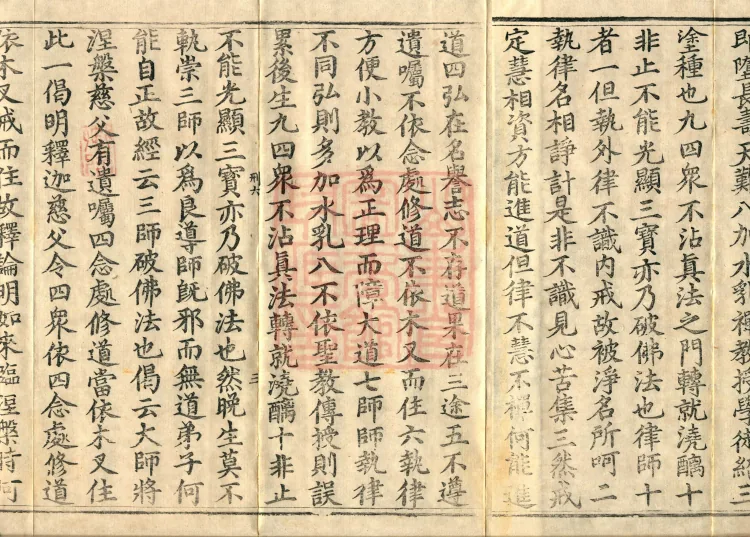 長壽天難八加水乳禪教授學徒
塗種也九四衆不沾眞法之門轉就澆醨十
非止不能光顯三寳亦乃破佛法也律師十
者一但執外律不識内戒故被淨名所呵二
執律名相諍計是非不識見心苦集三然戒
定慧相資方能進道但律不慧不禪何能進
道四弘在名譽志不存道果在三途五不遵
遺囑不依念處修道不依木叉而住六執律
方便小教以爲正理而障大道七師師執律
不同弘則多加水乳八不依聖教傳授則誤
累後生九四衆不沾眞法轉就澆醨十非止
刑六 三
不能光顯三寳亦乃破佛法也然晚生莫不
軌崇三師以爲良導師既邪而無道弟子何
能自正故經云三師破佛法也偈云大師將
涅槃慈父有遺囑四念處修道當依木叉住
此一偈明釋迦慈父令四衆依四念處修道
依木叉戒而住故釋論明如來臨涅槃時何